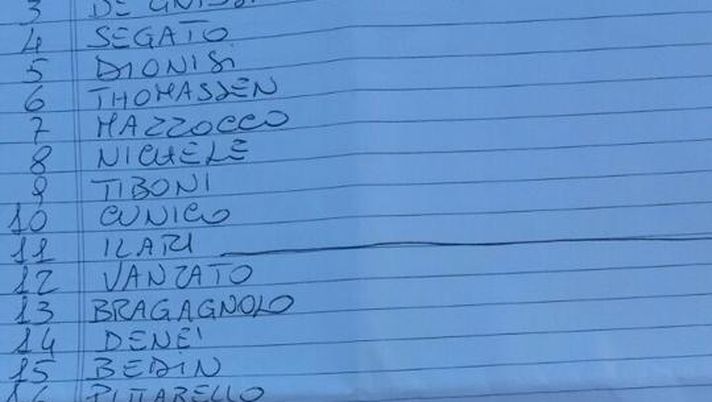 3 DE
4 SEGATO
5 DIONISI
6 THOMASSEN
7 MAZZOCCO
8 NICHELE
9 TIBONI
10 CUNICO
11 ILARI
12 VANZATO
13 BRAGAGNOLO
14 DENE'
15 BEDIN
16